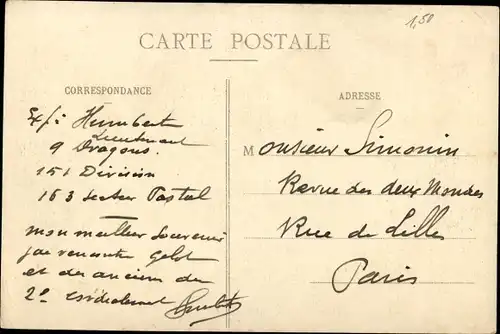 1,50
CARTE POSTALE
CORRESPONDANCE
Exp: Humbert
Lieutenant
9 Dragons.
151 Division
163 Secteur Postal
mon meilleur souvenir
j'ai rencontré
et des anciens du
2e
Humbert
ADRESSE
Monsieur Simonin
Revue des deux Mondes
Rue de Lille
Paris